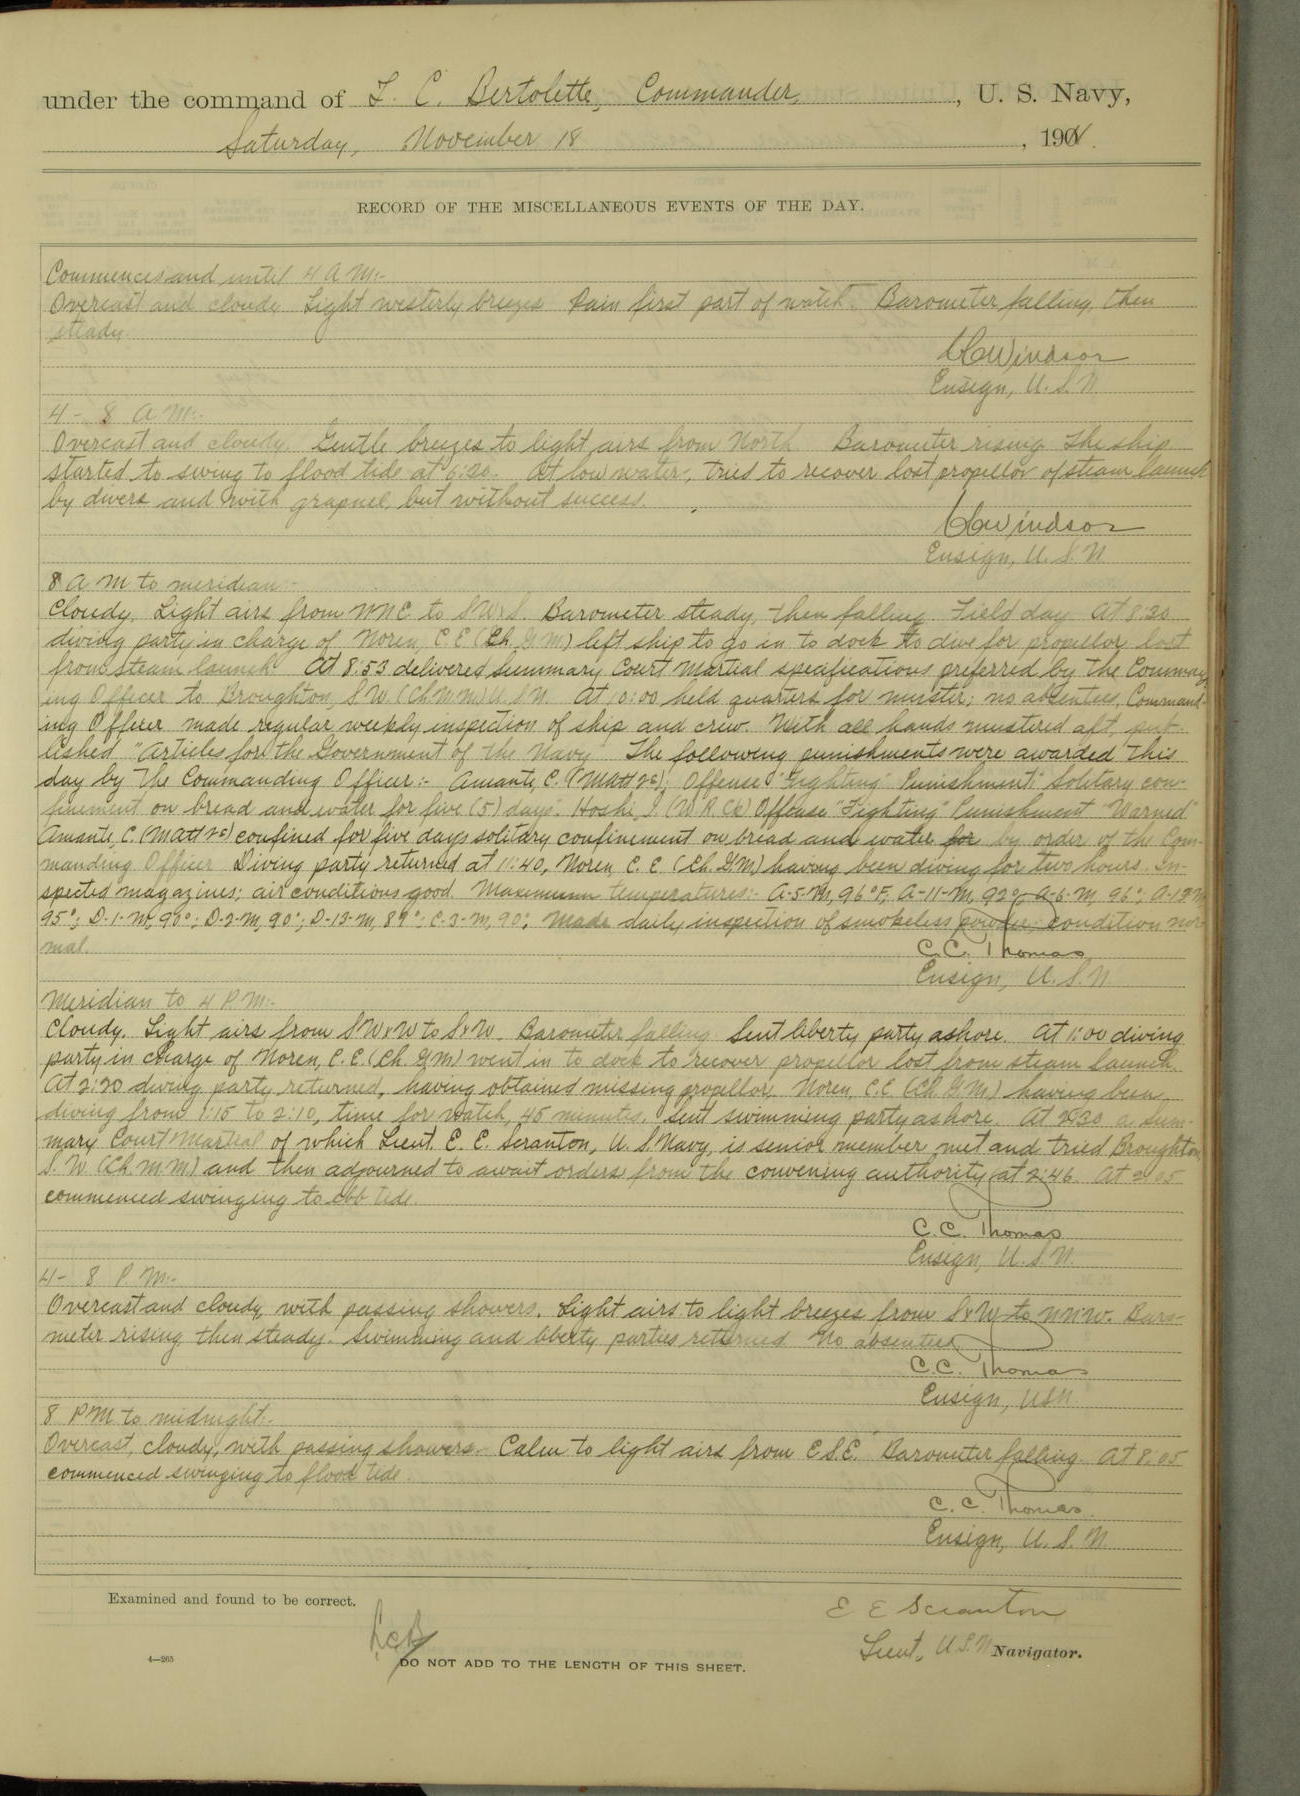 under the command of L. C. Bertolette, Commander, U. S. Navy,
Saturday, November 18, 1901.
RECORD OF THE MISCELLANEOUS EVENTS OF THE DAY.
Commences and until 4 A M:-
Overcast and cloudy. Light westerly breezes Rain first part of watch. Barometer falling, then
steady.
Windsor
Ensign, U. S. N.
4 - 8 A M:-
Overcast and cloudy. Gentle breezes to light airs from North Barometer rising. The ship
started to swing to flood tide at 6:20. At low water, tried to recover lost propellor of steam launch
by divers and with grapnel, but without success.
Windsor
Ensign, U. S. N.
8 A M to meridian:-
Cloudy. Light airs from NNE to SWxS. Barometer steady, then falling. Field day. At 8:30
diving party in charge of Noren, C. E. (Ch. G M) left ship to go in to dock to dive for propellor lost
from steam launch. At 8:53 delivered Summary Court Martial specifications preferred by the Command
ing Officer to Broughton, S W (Ch M M) U. S. N. At 10:00 held quarters for muster; no absentees. Command-
ing Officer made regular weekly inspection of ship and crew. With all hands mustered aft, pub-
lished "Articles for the Government of the Navy" The following punishments were awarded this
day by The Commanding Officer:- Amante, C. (M Att 2c), Offense "Fighting" Punishment "Solitary con-
finement on bread and water for five (5) days". Hoshi, I (W R Ck) Offense "Fighting" Punishment "Warned"
Amante, C. (M Att 2c) confined for five days solitary confinement on bread and water for by order of the Com-
manding Officer. Diving party returned at 11:40, Noren, C. E. (Ch. G M) having been diving for two hours. In-
spected magazines; air conditions good. Maximum temperatures:- A-5-M, 96°F; A-11-M, 92°; A-6-M, 96°; A-12-M
95°; D-1-M, 90°; D-2-M, 90°; D-13-M, 89°; C-3-M, 90°. Made daily inspection of smokeless powder; condition nor-
mal.
C. C. Thomas
Ensign, U. S. N.
Meridian to 4 P. M:-
Cloudy. Light airs from SWxW to SxW. Barometer falling. Sent liberty party ashore. At 1:00 diving
party in charge of Noren, C. E. (Ch. G M) went in to dock to recover propellor lost from steam launch.
At 2:20 diving party returned, having obtained missing propellor. Noren, C. E (Ch G M) having been
diving from 1:15 to 2:10, time for watch, 45 minutes. Sent swimming party ashore. At 2:30 a Sum-
mary Court Martial of which Lieut. E. E. Scranton, U. S. Navy, is senior member met and tried Broughton,
S. W (Ch M M) and then adjourned to await orders from the convening authority at 2:46. At 2:05
commenced swinging to ebb tide.
C. C. Thomas
Ensign, U. S. N.
4 - 8 P. M:-
Overcast and cloudy, with passing showers. Light airs to light breezes from SxW to NNW. Baro-
meter rising, then steady. Swimming and liberty parties returned No absentees.
C. C. Thomas
Ensign, USN.
8 P M to midnight:-
Overcast, cloudy, with passing showers. Calm to light airs from E S E. Barometer falling. At 8:05
commenced swinging to flood tide.
C. C. Thomas
Ensign, U. S. N.
Examined and found to be correct.
LCB
E E Scranton
Lieut., U. S. N. Navigator.
4—265
DO NOT ADD TO THE LENGTH OF THIS SHEET.